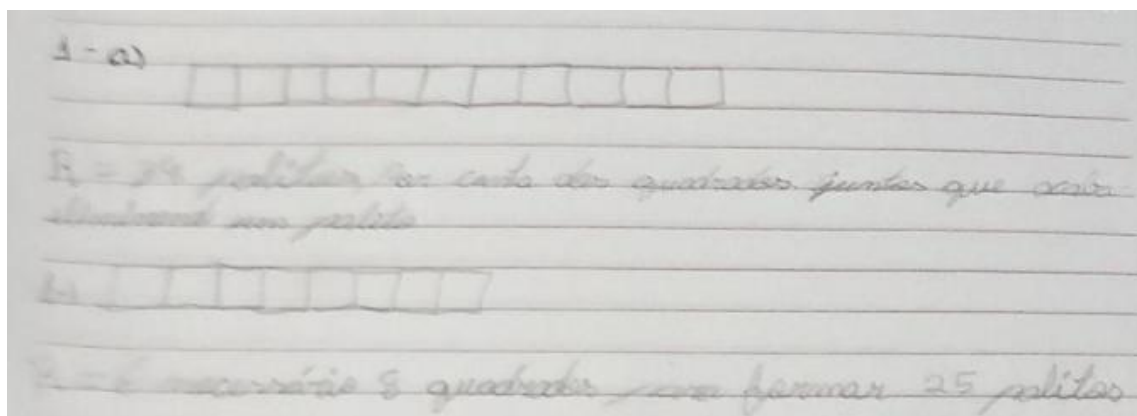 1 - a)
R = 34 palitos Por conta dos quadrados juntos que acaba
um palito
b)
R - É necessário 8 quadrados para formar 25 palitos